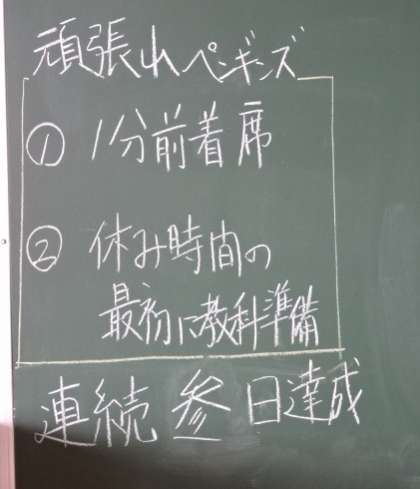 頑張れペンギンズ
① 1分前着席
② 休み時間の
最初に教科準備
連続参日達成